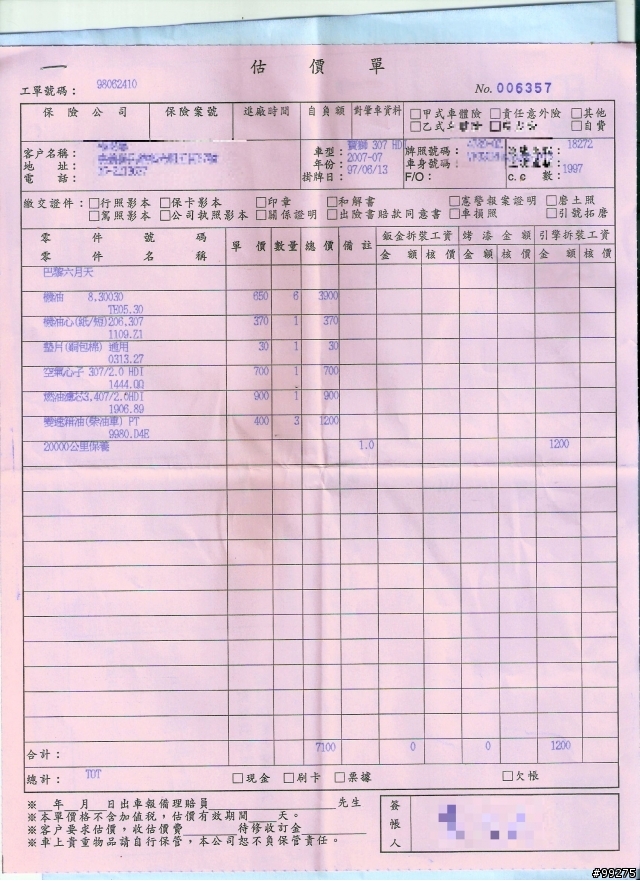 估價單
工單號碼： 98062410
No. 006357
保險公司 保險案號 進廠時間 自負額 對肇車資料 □甲式車體險 □責任意外險 □其他
□乙式 □自費
客戶名稱： 車型： 寶獅 307 HD 牌照號碼： 18272
地址： 年份： 2007-07 車身號碼：
電話： 掛牌日： 97/06/13 F/O： c.c 數： 1997
繳交證件： □行照影本 □保卡影本 □印章 □和解書 □憲警報案證明 □磨土照
□駕照影本 □公司執照影本 □關係證明 □出險書賠款同意書 □車損照 □引號拓磨
零件號碼 單價 數量 總價 備註 鈑金拆裝工資 烤漆金額 引擎拆裝工資
零件名稱 金額 核價 金額 核價 金額 核價
巴黎六月天
機油 8.30030 650 6 3900
TE05.30
機油心(紙/短)206,307 370 1 370
1109.Z1
墊片(銅包棉) 通用 30 1 30
0313.27
空氣心子 307/2.0 HDI 700 1 700
1444.QQ
燃油濾芯3,407/2.0HDI 900 1 900
1906.89
變速箱油(柴油車) PT 400 3 1200
9980.D4E
20000公里保養 1.0 1200
合計： 7100 0 0 1200
總計： TOT □現金 □刷卡 □票據 □欠帳
※__年__月__日出車報備理賠員____________先生
※本單價格不含加值稅，估價有效期間____天。
※客戶要求估價，收估價費______待修收訂金______
※車上貴重物品請自行保管，本公司恕不負保管責任。
簽帳人
#99275